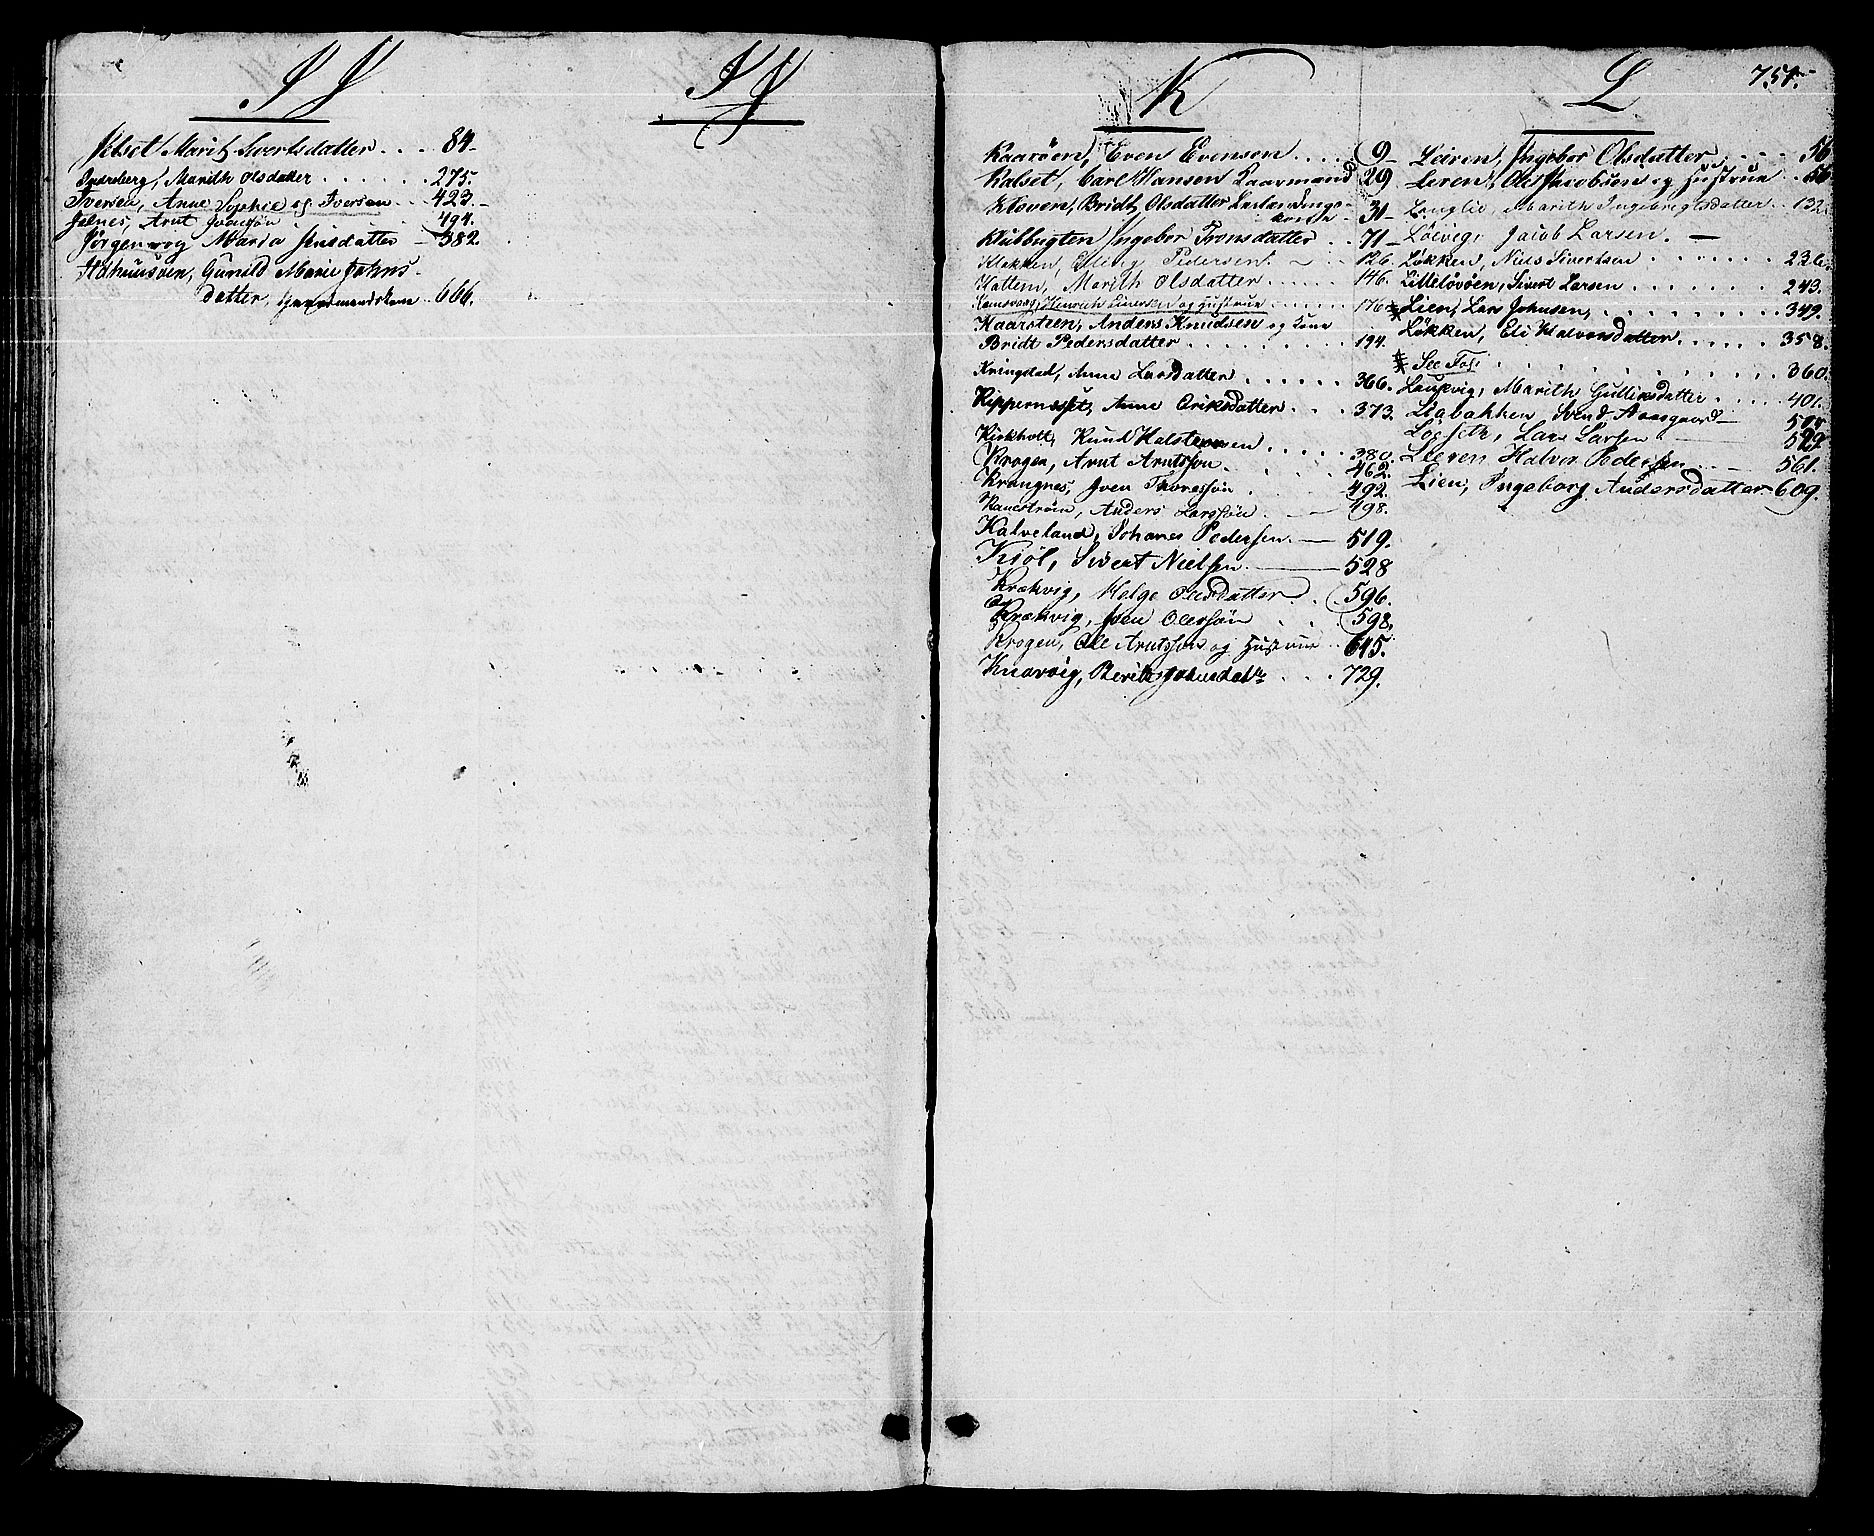 I J
Ilset Marit Sivertsdatter . . . 84
Indreberg, Marith Olsdatter . . . . . . 275.
Iversen, Anne Sophie og Iversen . . 423. -
Jølnes, Arnt Joensøn . . . . . 494.
Jörgenvog Maria Jensdatter - 382.
Gunild Marie Johns-
datter, . . 666.
I J
K
Kaarøen, Even Evensen . . . . 9 -
Kalset, Carl Hansen Kaarmand 29
Kloven, Bridt Olsdatter
31 -
Klubbugten Ingebor Tronsdatter . . 71 -
Klokken, Pedersen. - . 126.
Kattem, Marith Olsdatter . . . . . . 146.
Henrich og Hustrue . . . . . . 176
Kaarsteen, Anders Knudsen og Kone
Bridt Pedersdatter . . . . . . . . . . 194.
Kringstad, Anne Larsdatter . . . . . . 366.
Kippernesset, Anne Eriksdatter . . . 373.
Kirkholt, Knud Halstensen . . . . . 380.
Krogen, Arnt Arntssøn . . . . . 462.
Krangnes, Joen Thoressøn . . . . 492.
Anders Larssøn . - - 498.
Kalveland, Johanes Pedersen. - 519.
Kiøl, Sivert Nielsen . - 528
Krækvig, Helge Olesdatter . . 596.
Krækvig, Joen Olessøn . . . 598.
Krogen, Ole Arntssøn og Hustrue . . 645.
Knarvig, Berith Johnsdatr . . . 729.
L
751.
Leiren, Ingebor Olsdatter . . . . 56
Leren, Ole Jacobsen og Hustrue . . 56
Langlie, Marith Ingebrigtsdatter . . 132.
Löevig, Jacob Larsen. -
Løkken, Niels Sivertsen . . . . . . . 226.
Lilleløvøen, Sivert Larsen . . . . . . . 243.
Lien, Lars Johnsen, . . . . . . . . . 349.
Løkken, Eli Halvorsdatter . . . . . . 358.
See Fol: . . . . . . . . . . . . 360.
Laukvig, Marith Gullixdatter . . . . 401.
Liabakken Svend Aasgaard -
Löeseth, Lars Larsen . - 529.
Leeren Halvor Pedersen . . - 561.
Lien, Ingeborg Andersdatter 609.